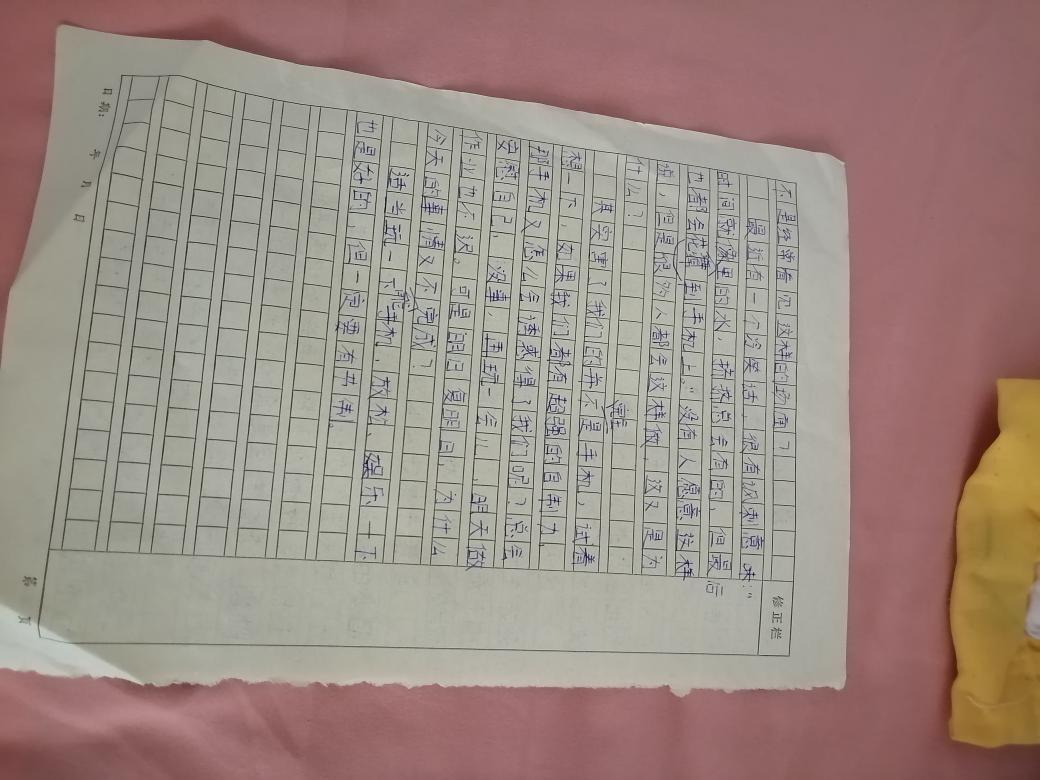 不是经常看见这样的场面？
修正栏
最近有一个冷笑话，很有讽刺意味："
时间就像里的水，挤挤总会有的，但最后
也都会花费到手机上。"没有人愿意这样
说，但是很多的人都会这样做，这又是为
什么？
其实害了我们的并不是手机，试着
想一下，如果我们都有超强的自制力，
那手机又怎么会诱惑得了我们呢？总会
安慰自己，没事，再玩一会儿，明天做
作业也不迟。可是明日复明日，为什么
今天的事情又不完成？
适当玩一下手机，放松、娱乐一下
也是好的，但一定要有节制。
日期： 年 月 日
第 页